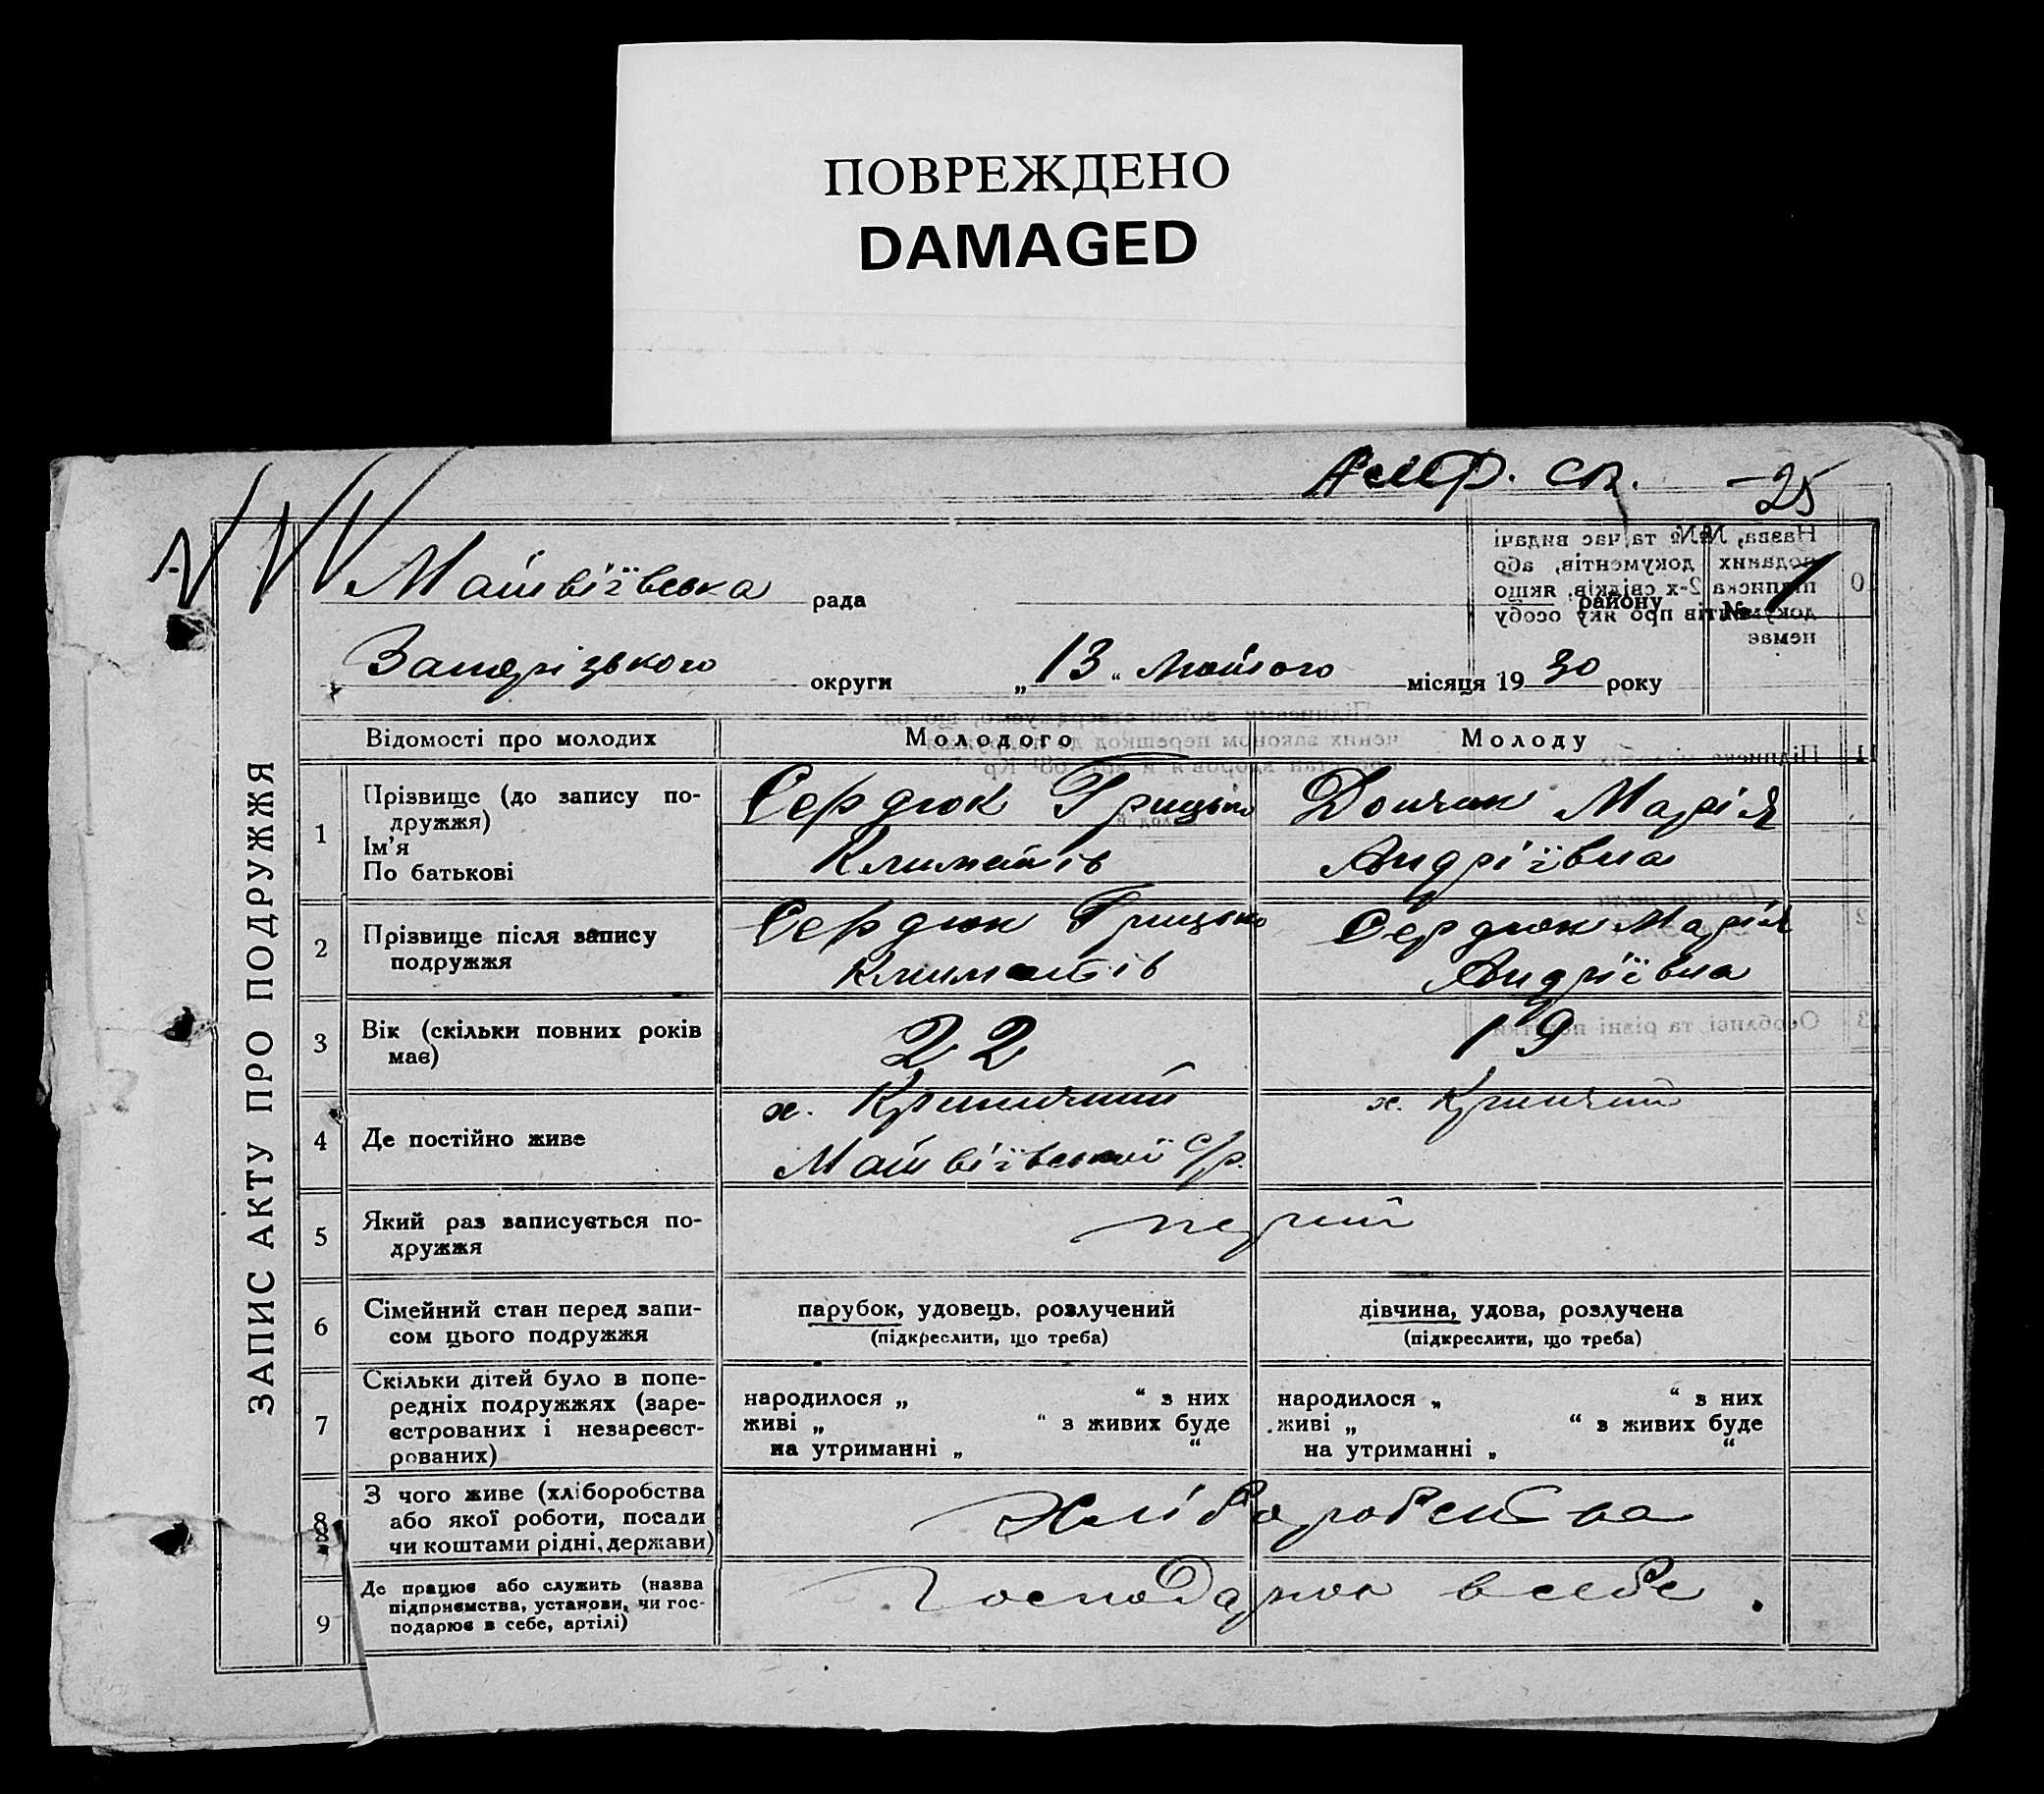 ПОВРЕЖДЕНО
DAMAGED
сп. -25
Матвіївська рада району № 1
Запорізького округи „13“ лютого місяця 1930 року
ЗАПИС АКТУ ПРО ПОДРУЖЖЯ
Відомості про молодих Молодого Молоду
1 Прізвище (до запису по-
дружжя)
Ім'я
По батькові
Сердюк Грицько
Климентів
Марія
Андріївна
2 Прізвище після запису
подружжя
Сердюк Грицько
Климентів
Сердюк Марія
Андріївна
3 Вік (скільки повних років
має)
22 19
4 Де постійно живе
х. Криничний
Матвіївської с/р.
х.
5 Який раз записується по-
дружжя
перший
6 Сімейний стан перед запи-
сом цього подружжя
парубок, удовець, розлучений
(підкреслити, що треба)
дівчина, удова, розлучена
(підкреслити, що треба)
7 Скільки дітей було в попе-
редніх подружжях (заре-
єстрованих і незареєст-
рованих)
народилося „ “ з них
живі „ “ з живих буде
на утриманні „ “
народилося „ “ з них
живі „ “ з живих буде
на утриманні „ “
8 З чого живе (хліборобства
або якої роботи, посади
чи коштами рідні, держави)
Хліборобства
9 Де працює або служить (назва
підприємства, установи, чи гос-
подарює в себе, артілі)
в себе.